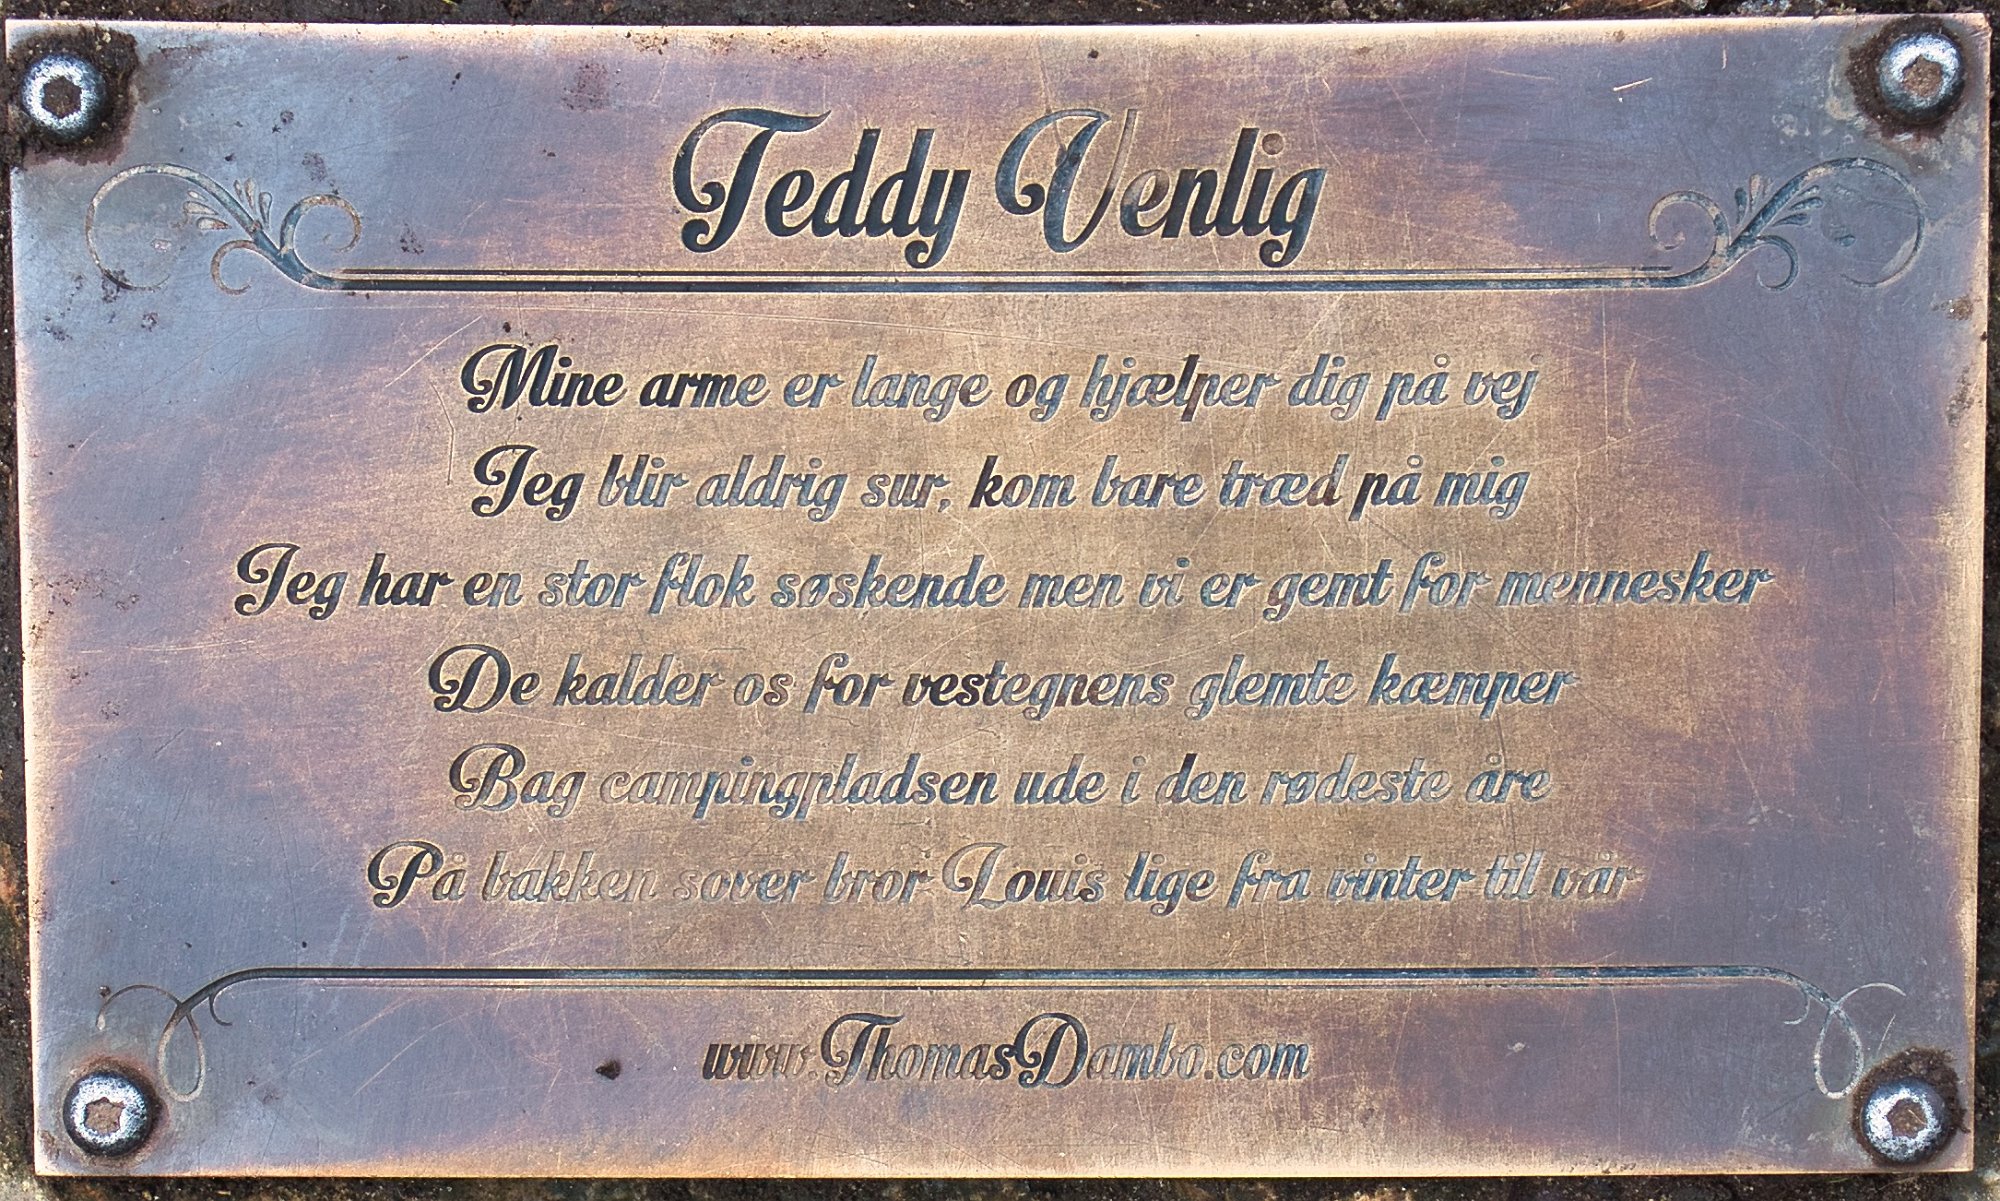 Teddy Venlig
Mine arme er lange og hjælper dig på vej
Jeg blir aldrig sur, kom bare træd på mig
Jeg har en stor flok søskende men vi er gemt for mennesker
De kalder os for vestegnens glemte kæmper
Bag campingpladsen ude i den rødeste åre
På bakken sover bror Louis lige fra vinter til vår
www.ThomasDambo.com